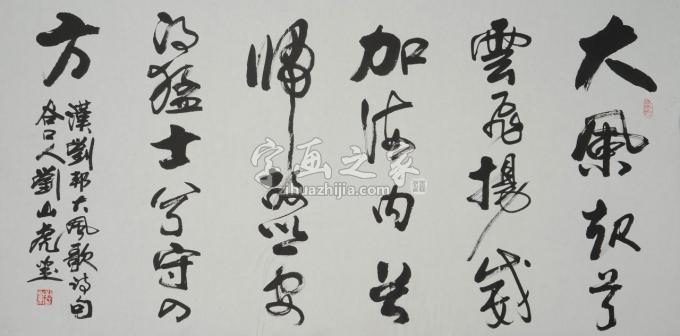 大風起兮
雲飛揚威
加海内兮
歸故鄉安
得猛士兮守四
方
漢劉邦大風歌詩句
谷口人劉山虎書
字画之家
zihuazhijia.com